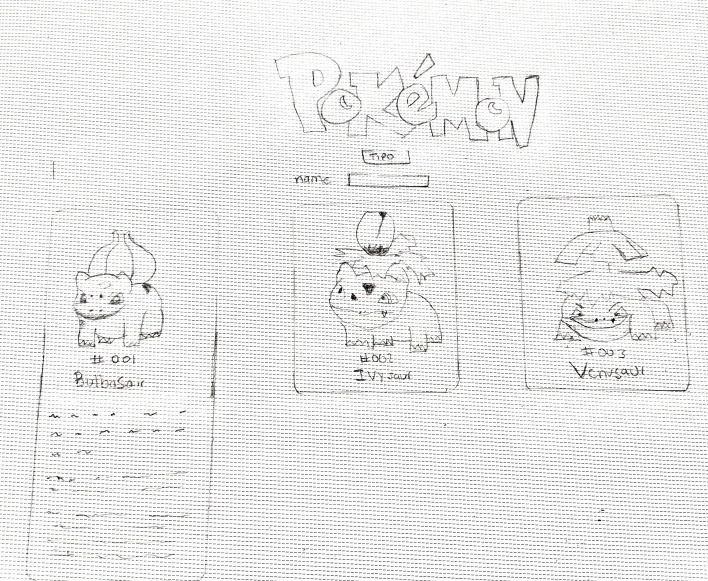 Pokémon
TIPO
name
#001
Bulbasair
#002
IVysaur
#003
Venusaur